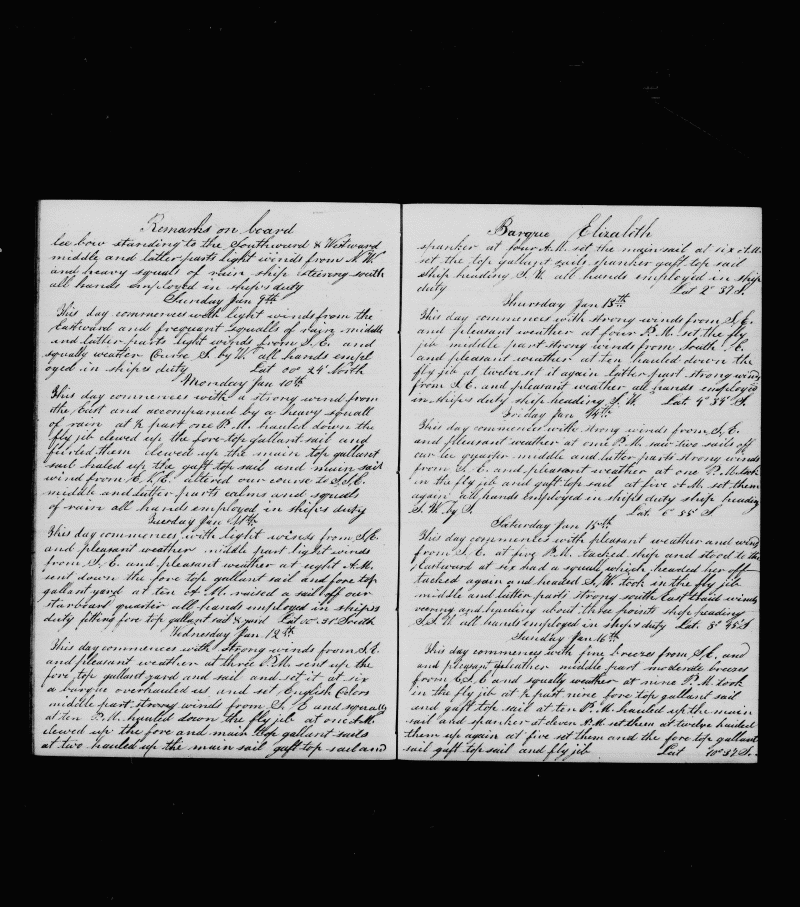 Remarks on board
lee bow standing to the Southward & Westward
middle and latter parts light winds from N.W.
and heavy squals of rain ship steering south
all hands employed in ship's duty
Sunday Jan 9th
This day commences with light winds from the
Eastward and frequant squalls of rain middle
and latter parts light winds from S.E. and
squally weather Course S. by W. all hands empl
oyed in ship's duty Lat 00° 24' North
Monday Jan 10th
This day commences with a strong wind from
the East and accompanied by a heavy squall
of rain at ½ past one P.M. hauled down the
fly jib clewed up the fore top gallant sail and
furled them clewed up the main top gallant
sail haled up the gaft top sail and main sail
wind from E.N.E. altered our course to S.S.E.
middle and latter parts calms and squals
of rain all hands employed in ship's duty
Tuesday Jan 11th
This day commences with light winds from S.E.
and pleasant weather middle part light winds
from S.E. and pleasant weather at eight A.M.
sent down the fore top gallant sail and fore top
gallant yard at ten A.M. raised a sail off our
starboard quarter all hands employed in ship's
duty fitting fore top gallant sail & yard Lat 00° 50' South
Wednesday Jan 12th
This day commences with strong winds from S.E.
and pleasant weather at three P.M. sent up the
fore top gallant yard and sail and set it at six
a barque overhauled us and set English Colors
middle part strong winds from S.E. and squally
at ten P.M. hauled down the fly jib at one A.M.
clewed up the fore and main top gallant sails
at two hauled up the main sail gaft top sail and
Barque Elizabeth
spanker at four A.M. set the main sail at six A.M.
set the top gallant sails spanker gaft top sail
ship heading S.W. all hands employed in ship
duty Lat 2° 37' S.
Thursday Jan 13th
This day commences with strong winds from S.E.
and pleasant weather at four P.M. set the fly
jib middle part strong winds from South E.
and pleasant weather at ten hauled down the
fly jib at twelve set it again latter part strong winds
from S.E. and pleasant weather all hands employed
in ship's duty ship heading S.W. Lat. 4° 35' S.
Friday Jan 14th
This day commences with strong winds from S.E.
and pleasant weather at one P.M. saw two sails off
our lee quarter middle and latter parts strong winds
from S.E. and pleasant weather at one P.M. took
in the fly jib and gaft top sail at five A.M. set them
again all hands employed in ship's duty ship heading
S.W. by S. Lat. 6° 55' S
Saturday Jan 15th
This day commences with pleasant weather and wind
from S.E. at five P.M. tacked ship and stood to the
Eastward at six had a squall which headed her off
tacked again and headed S.W. took in the fly jib
middle and latter parts strong south East traid winds
veering and hauling about three points ship heading
S.S.W. all hands employed in ship's duty Lat. 8° 45' S
Sunday Jan. 16th
This day commences with fine breezes from S.E. and
and pleasant weather middle part moderate breezes
from E.S.E and squally weather at nine P.M. took
in the fly jib at ½ past nine fore top gallant sail
and gaft top sail at ten P.M. hauled up the main
sail and spanker at eleven P.M. set them at twelve hauled
them up again at five set them and the fore top gallant
sail gaft top sail and fly jib Lat 10° 37' S.